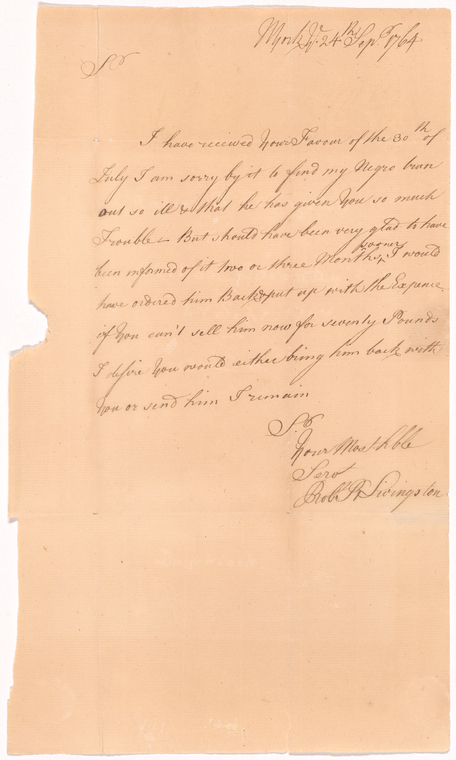 York 24th Sepr 1764
Sr
I have received Your Favour of the 30th of
July I am sorry by it to find my Negro turn
out so ill & that he has given You so much
Trouble - But should have been very glad to have
been informed of it two or three Months sooner, I would
have ordered him Back & put up with the Expence
if You can't sell him now for seventy Pounds
I desire You would either bring him back with
You or send him I remain
Sr
Your Most hble
Servt
Robt R Livingston